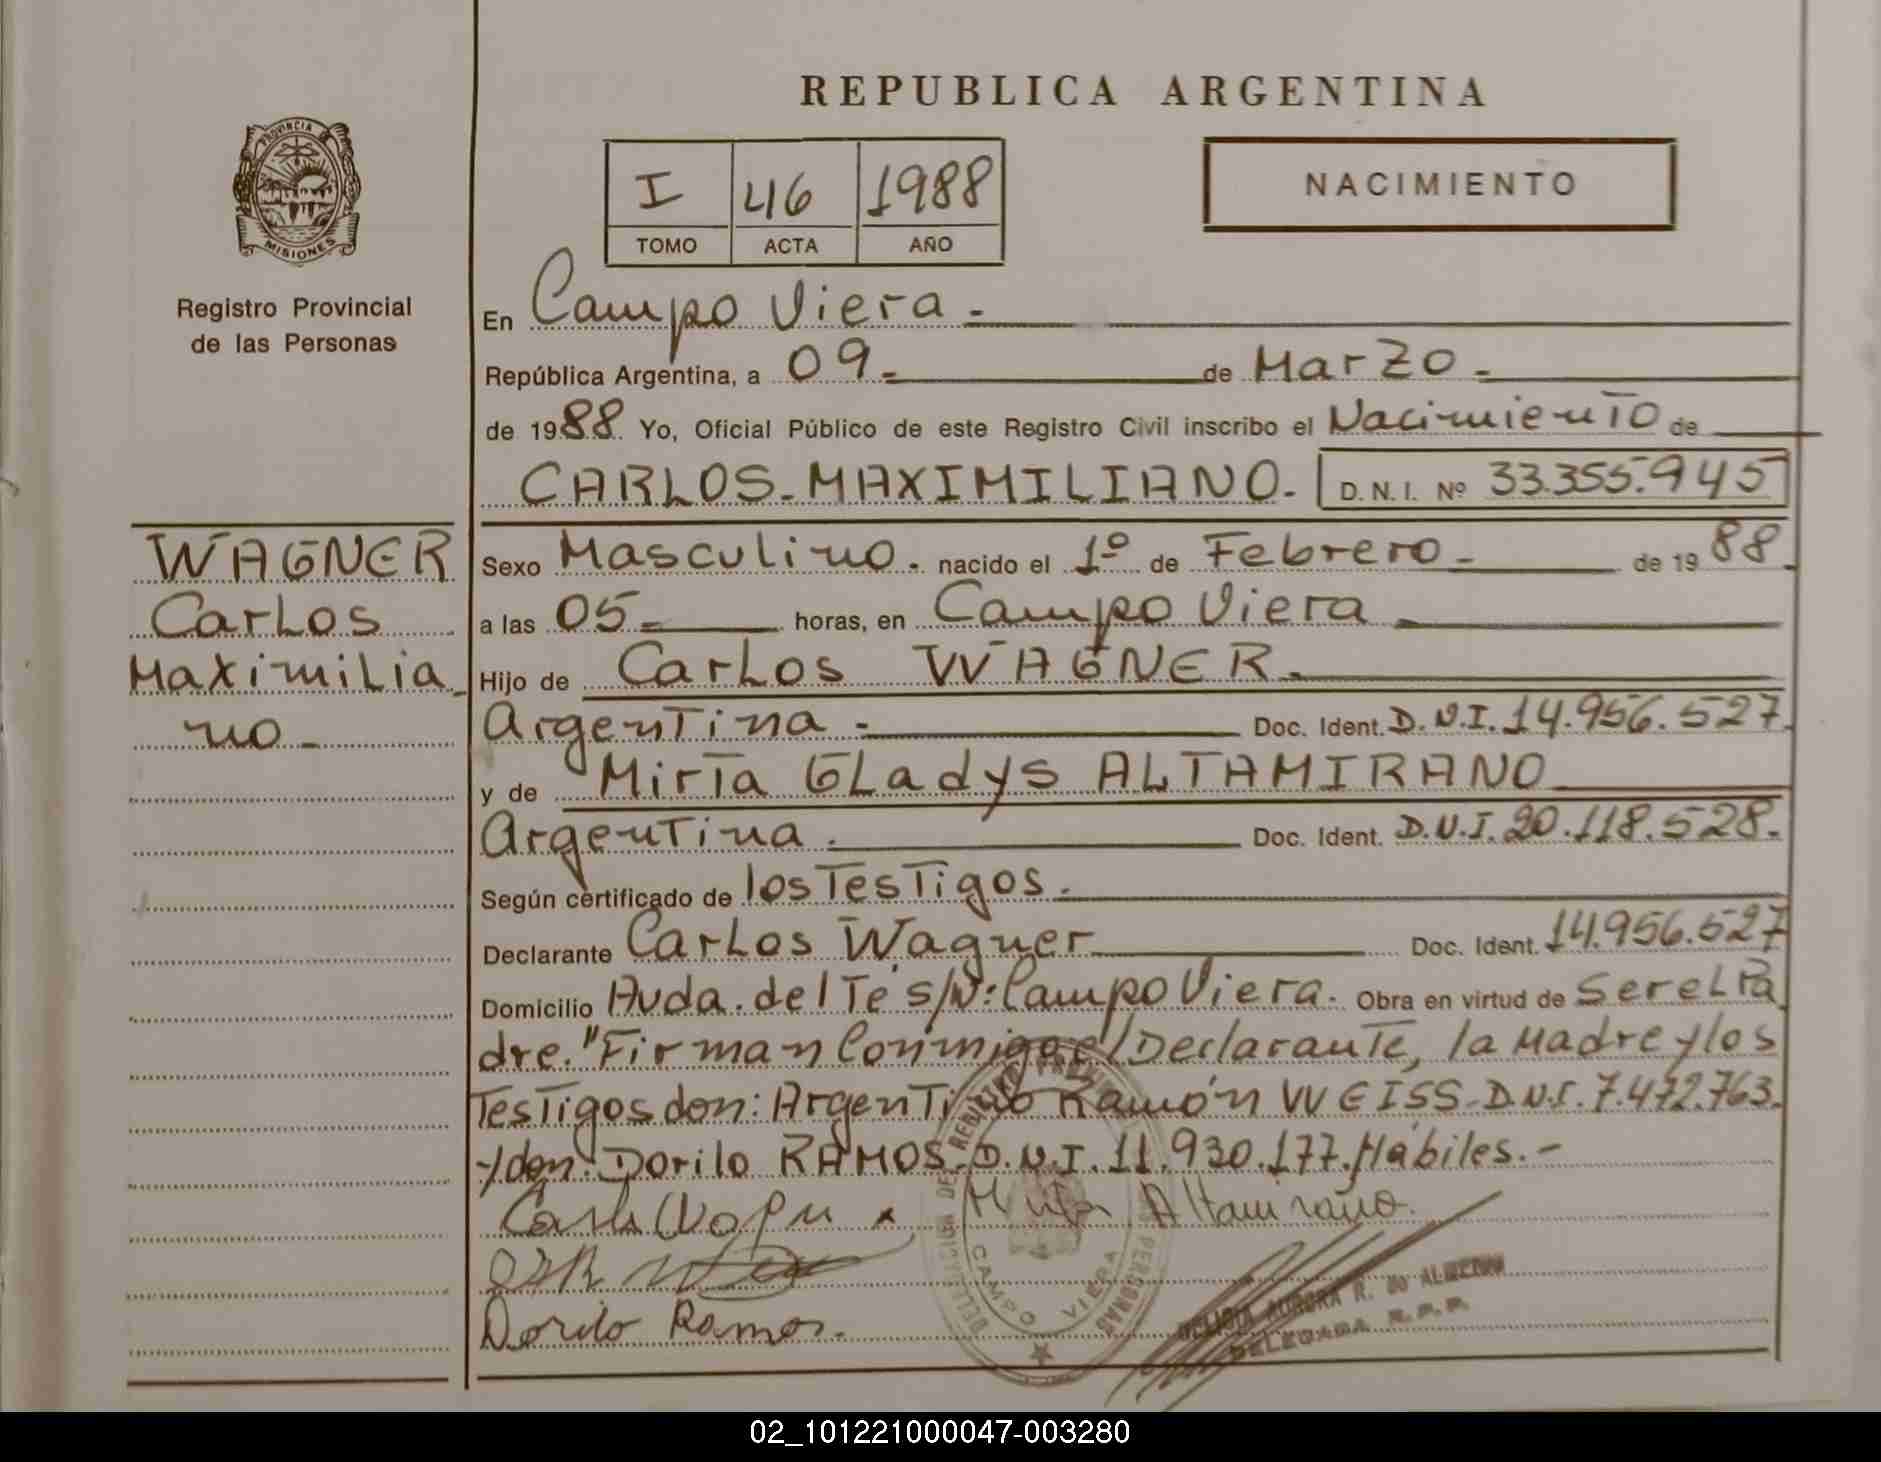 REPUBLICA ARGENTINA
PROVINCIA
MISIONES
Registro Provincial
de las Personas
I 46 1988
TOMO ACTA AÑO
NACIMIENTO
En Campo Viera.-
República Argentina, a 09.- de Marzo.-
de 1988. Yo, Oficial Público de este Registro Civil inscribo el Nacimiento de
CARLOS-MAXIMILIANO.- D.N.I. Nº 33.355.945
WAGNER
Carlos
Maximilia-
no-
Sexo Masculino. nacido el 1º de Febrero- de 1988.
a las 05- horas, en Campo Viera-
Hijo de Carlos WAGNER.-
Argentina.- Doc. Ident. D.N.I. 14.956.527.
y de Mirta Gladys ALTAMIRANO
Argentina.- Doc. Ident. D.N.I. 20.118.528.
Según certificado de los Testigos.-
Declarante Carlos Wagner Doc. Ident. 14.956.527
Domicilio Avda. del Té s/N: Campo Viera. Obra en virtud de Ser el Pa
dre. "Firman Conmigo el Declarante, la Madre y los
Testigos don: Argentino Ramón WEISS-D.N.I. 7.472.763.
y don: Dorilo RAMOS-D.N.I. 11.930.177. Hábiles.-
Mirta Altamirano.
Dorilo Ramos.
CAMPO VIERA
DELEGADA R.P.P.
02_101221000047-003280